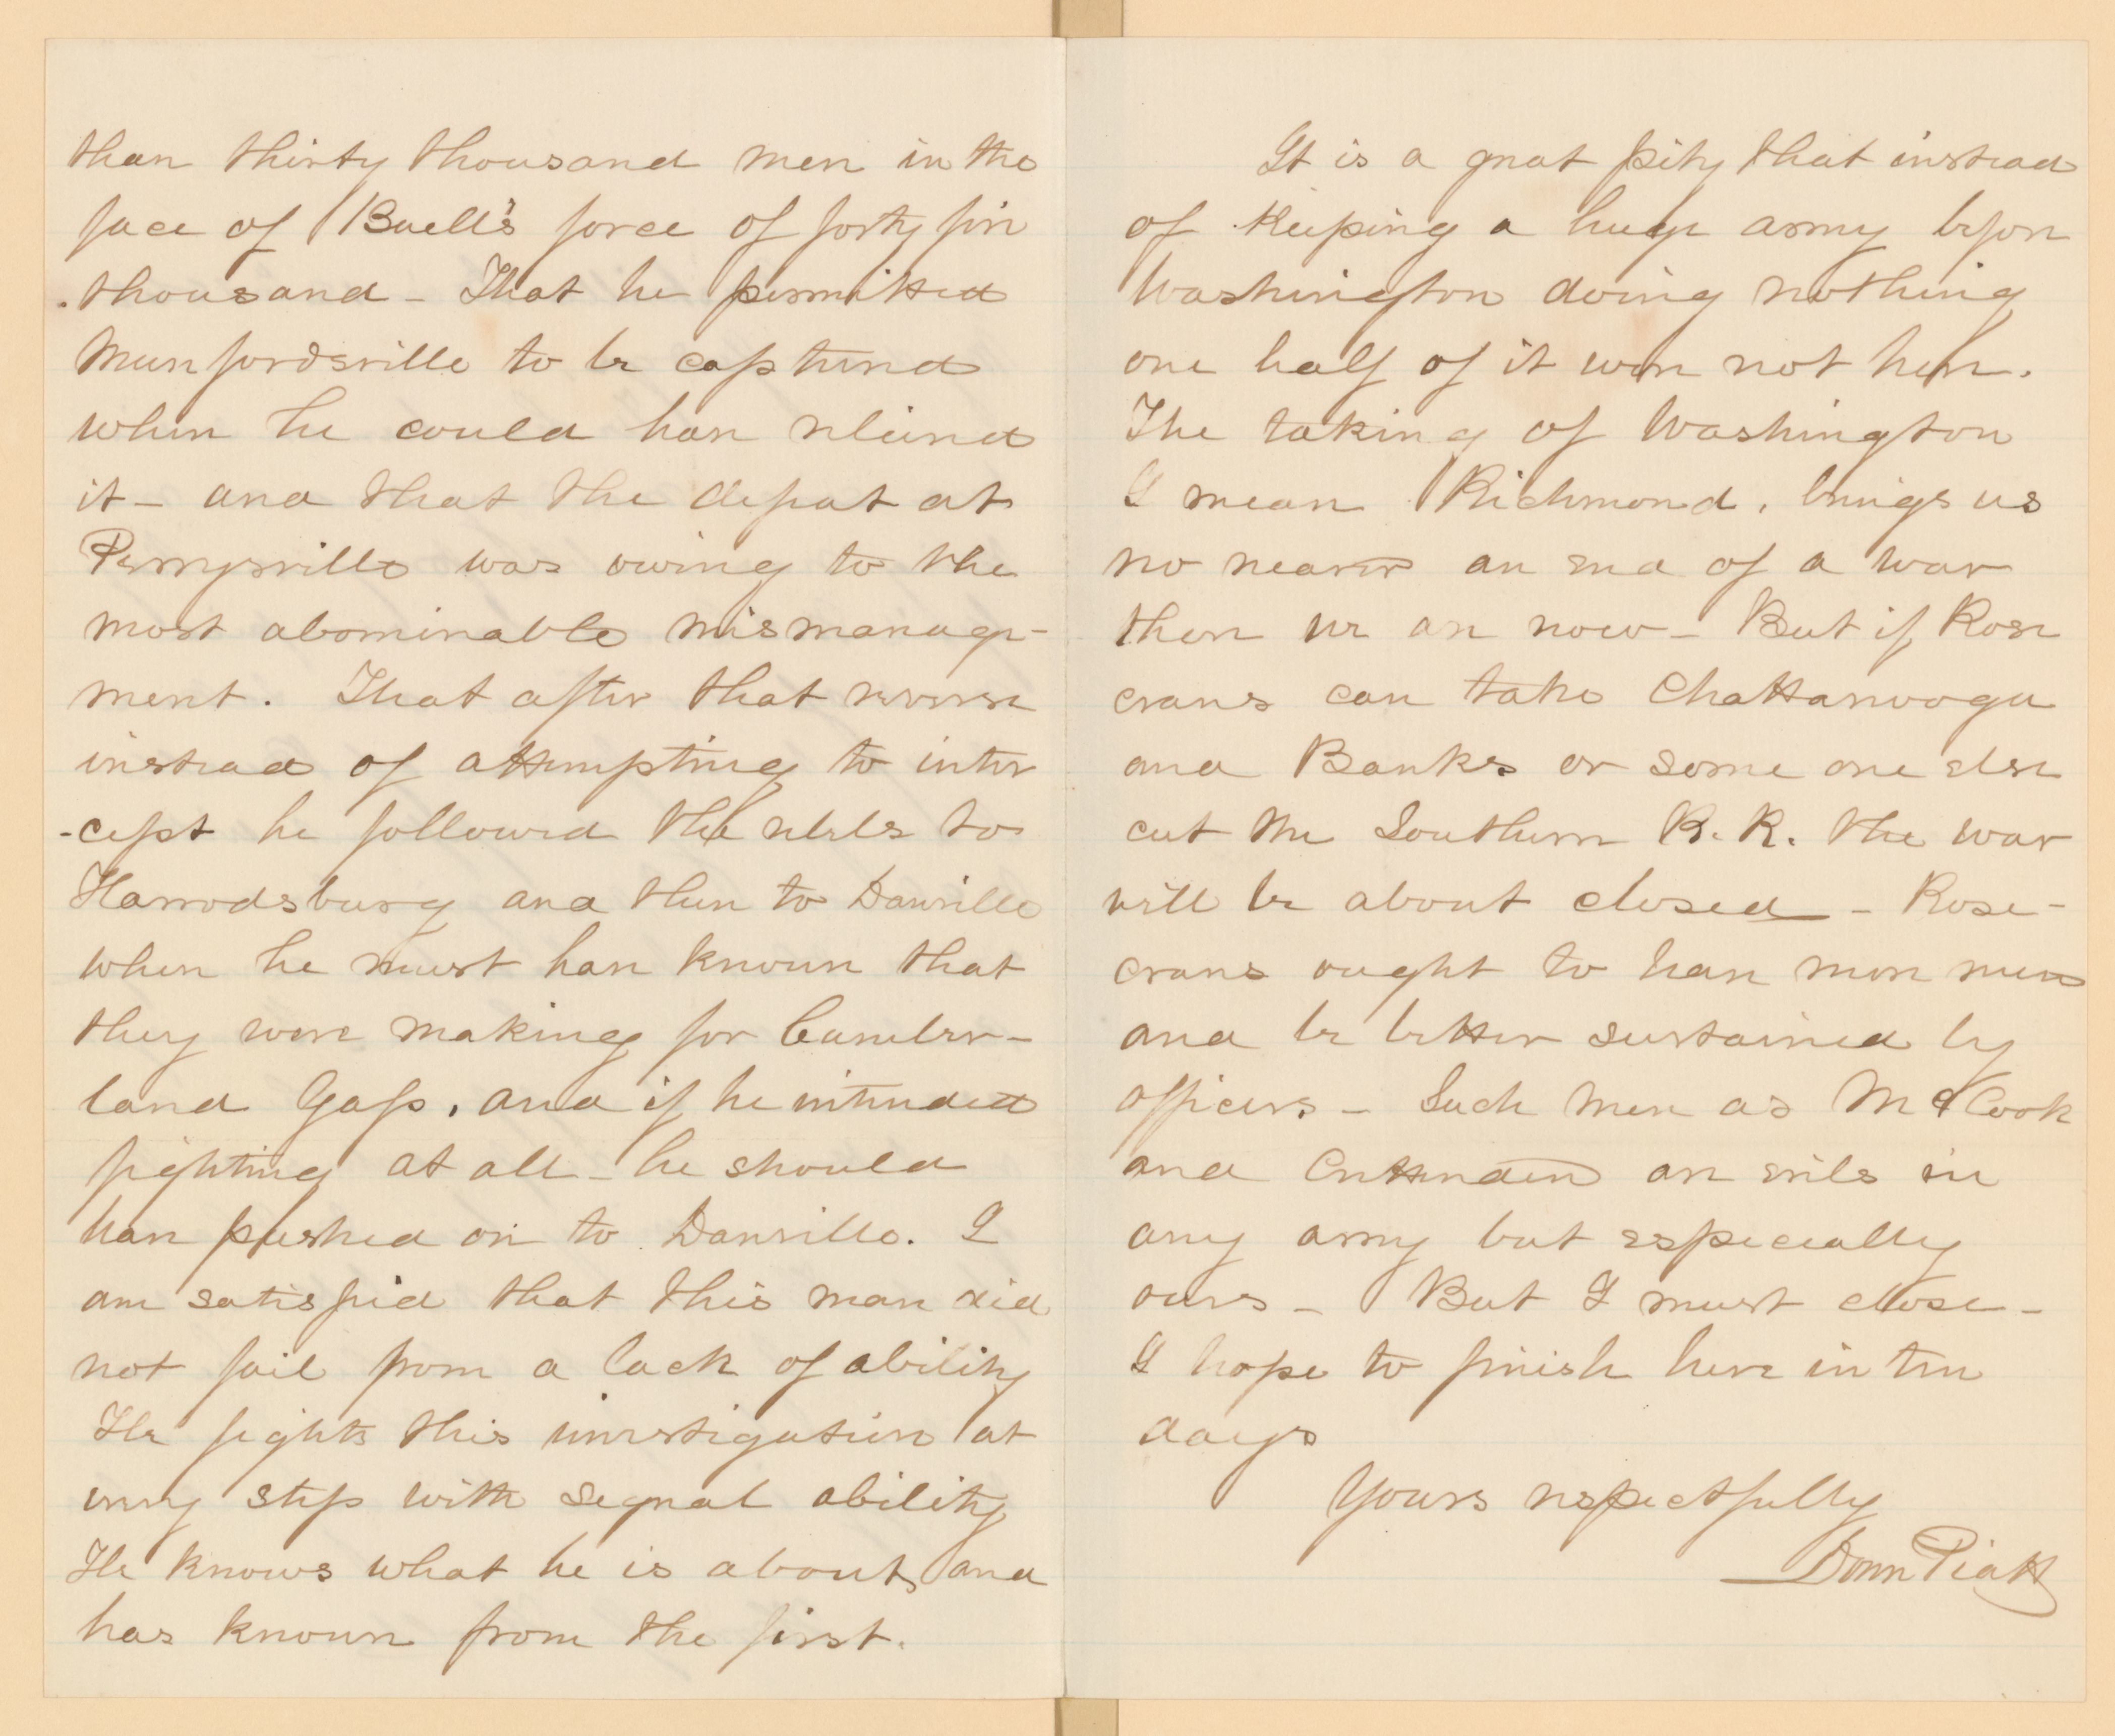 than thirty thousand men in the
face of Buell's force of forty five
thousand - That he permitted
Munfordsville to be captured
when he could have relieved
it - and that the defeat at
Perrysville was owing to the
most abominable mismanage-
ment. That after that reverse
instead of attempting to inter
-cept he followed the rebels to
Harrodsburg and then to Danville
when he must have known that
they were making for Cumber-
land Gap, and if he intended
fighting at all - he should
have pushed on to Danville. I
am satisfied that this man did
not fail from a lack of ability
He fights this investigation at
every step with signal ability
He knows what he is about, and
has known from the first.
It is a great pity that instead
of keeping a huge army before
Washington doing nothing
one half of it were not here.
The taking of Washington
I mean Richmond, brings us
no nearer an end of a war
then we are now - But if Rose
crans can take Chattanooga
and Banks or some one else
cut the Southern R. R. the war
will be about closed - Rose-
crans ought to have more men
and be better sustained by
officers - Such men as McCook
and Crittenden are evils in
any army but especially
ours - But I must close -
I hope to finish here in ten
days
Yours respectfully
Donn Piatt